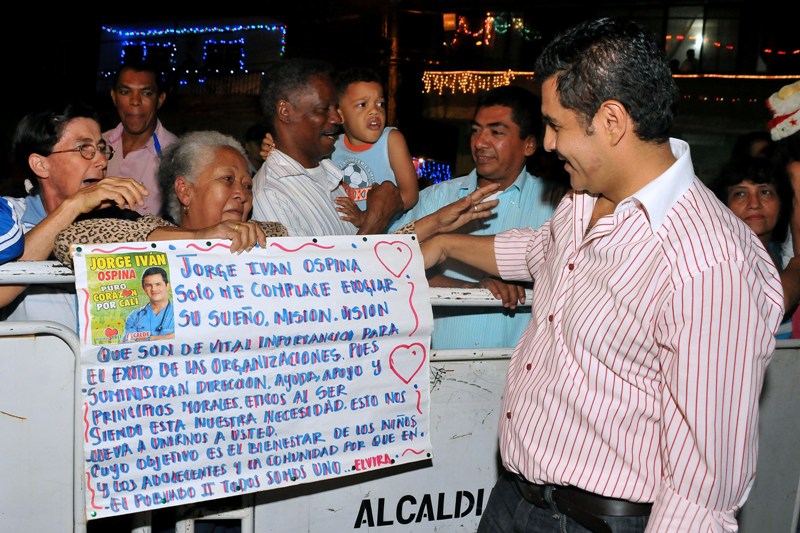 JORGE IVÁN
OSPINA
PURO
CORAZÓN
POR CALI
ALCALDE
JORGE IVAN OSPINA
SOLO ME COMPLACE ELOGIAR
SU SUEÑO, MISION, VISION
QUE SON DE VITAL IMPORTANCIA PARA
EL EXITO DE LAS ORGANIZACIONES. PUES
SUMINISTRAN DIRECCION, AYUDA, APOYO Y
PRINCIPIOS MORALES, ETICOS AL SER
SIENDO ESTA NUESTRA NECESIDAD. ESTO NOS
LLEVA A UNIRNOS A USTED.
CUYO OBJETIVO ES EL BIENESTAR DE LOS NIÑOS
Y LOS ADOLECENTES Y LA COMUNIDAD POR QUE EN.
EL POBLADO II TODOS SOMOS UNO... ELVIRA
ALCALDI